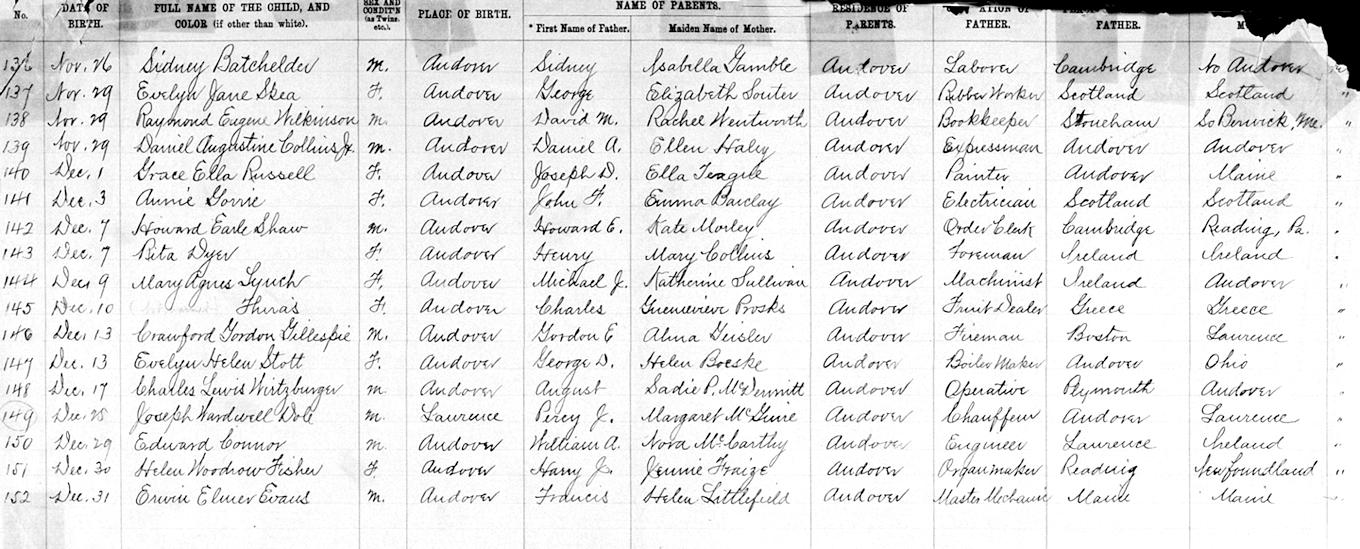 No. DATE OF BIRTH. FULL NAME OF THE CHILD, AND COLOR (if other than white). SEX AND CONDIT'N (as Twins, etc.). PLACE OF BIRTH. NAME OF PARENTS. * First Name of Father. Maiden Name of Mother. RESIDENCE OF PARENTS. OF FATHER. FATHER. M
136 Nov. 26 Sidney Batchelder M. Andover Sidney Isabella Gamble Andover Laborer Cambridge No Andover "
137 Nov. 29 Evelyn Jane Skea F. Andover George Elizabeth Souter Andover Rubber Worker Scotland Scotland "
138 Nov. 29 Raymond Eugene Wilkinson M. Andover David M. Rachel Wentworth Andover Bookkeeper Stoneham So Berwick, Me. "
139 Nov. 29 Daniel Augustine Collins Jr. M. Andover Daniel A. Ellen Haley Andover Expressman Andover Andover "
140 Dec. 1 Grace Ella Russell F. Andover Joseph D. Ella Teague Andover Painter Andover Maine "
141 Dec. 3 Annie Gorrie F. Andover John F. Emma Barclay Andover Electrician Scotland Scotland "
142 Dec. 7 Howard Earle Shaw M. Andover Howard E. Kate Morley Andover Order Clerk Cambridge Reading, Pa. "
143 Dec. 7 Rita Dyer F. Andover Henry Mary Collins Andover Foreman Ireland Ireland "
144 Dec. 9 Mary Agnes Lynch F. Andover Michael J. Katherine Sullivan Andover Machinist Ireland Andover "
145 Dec. 10 Thiras F. Andover Charles Guenevieve Prosks Andover Fruit Dealer Greece Greece "
146 Dec. 13 Crawford Gordon Gillespie M. Andover Gordon E Alma Geisler Andover Fireman Boston Laurence "
147 Dec. 13 Evelyn Helen Stott F. Andover George D. Helen Boeske Andover Boiler Maker Andover Ohio "
148 Dec. 17 Charles Lewis Wirtzburger M. Andover August Sadie P. McDermitt Andover Operative Plymouth Andover "
149 Dec. 25 Joseph Wardwell Dole M. Laurence Percy J. Margaret McGuire Andover Chauffeur Andover Laurence "
150 Dec. 29 Edward Connor M. Andover William A. Nora McCarthy Andover Engineer Laurence Ireland "
151 Dec. 30 Helen Woodrow Fisher F. Andover Harry J. Jennie Fraize Andover Organ maker Reading Newfoundland "
152 Dec. 31 Erwin Elmer Evans M. Andover Francis Helen Littlefield Andover Master Mechanic Maine Maine "